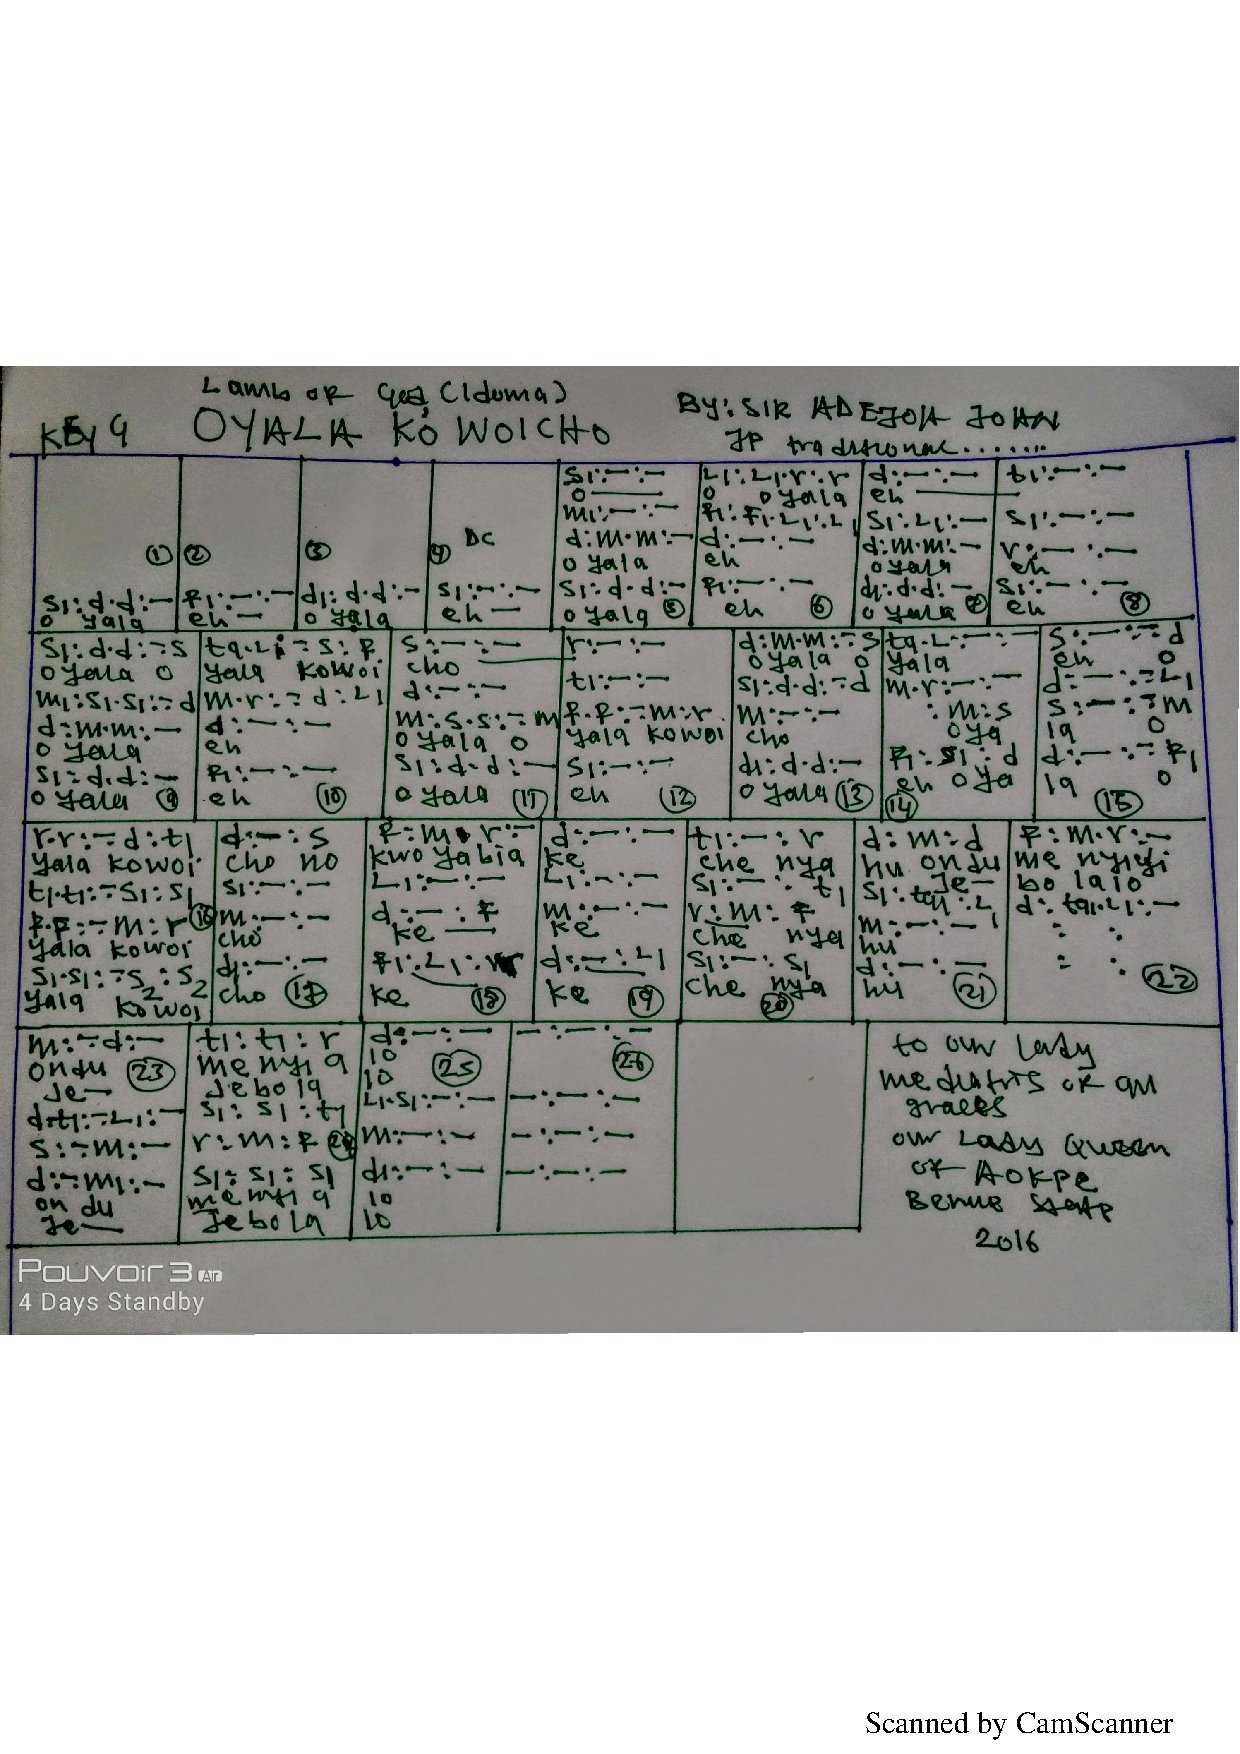 Lamb of God (Idoma)
KEY G OYALA KO WOICHO
BY: SIR ADEJOH JOHN
JP traditional.......
① ② ③ ④ DC
s₁:d.d:- f₁:-:- d₁:d.d:- s₁:-:-
o yala eh - o yala eh -
s₁:-:-
o
m₁:-:-
d:m.m:-
o yala
s₁:d.d:-
o yala ⑤
l₁:l₁.r:r
o o yala
f₁:f₁.l₁:l₁
d:-:-
eh
f₁:-:-
eh ⑥
d:-:-
eh
s₁:l₁:-
d:m.m:-
o yala
d₁:d.d:-
o yala ⑦
t₁:-:-
s₁:-:-
r:-:-
eh
s₁:-:-
eh ⑧
s₁:d.d:-s
o yala o
m₁:s₁.s₁:-d
d:m.m:-
o yala
s₁:d.d:-
o yala ⑨
ta.l:-s:f
yala kowoi
m.r:-d:l₁
d:-:-
eh
f₁:-:-
eh ⑩
s:-:-
cho
d:-:-
m:s.s:-m
o yala o
s₁:d.d:-
o yala ⑪
r:-:-
t₁:-:-
f.f:-m:r
yala kowoi
s₁:-:-
eh ⑫
d:m.m:-s
o yala o
s₁:d.d:-d
m:-:-
cho
d₁:d.d:-
o yala ⑬
ta.l:-:-
yala
m.r:-:-
:m:s
o ya
f₁:s₁:d
eh o ya
⑭
s:-:-d
eh o
d:-:-l₁
s:-:-m
la o
d:-:-f₁
la o
⑮
r.r:-d:t₁
yala kowoi
t₁.t₁:-s₁:s₁
f.f:-m:r ⑯
yala kowoi
s₁.s₁:-s₂:s₂
yala kowoi
d:-:s
cho no
s₁:-:-
m:-:-
cho
d₁:-:-
cho ⑰
f:m.r:-
kwo yabia
l₁:-:-
d:-:f
ke
f₁:l₁:
ke ⑱
d:-:-
ke
l₁:-:-
m:-:-
ke
d:-:l₁
ke ⑲
t₁:-:r
che nya
s₁:-:t₁
r:m:f
che nya
s₁:-:s₁
che nya
⑳
d:m:d
hu ondu
je-
s₁:ta₁:l₁
m:-:-
hu
d:-:-
hu ㉑
f:m.r:-
me nyiyi
bo lalo
d:ta₁.l₁:-
: :
: : ㉒
m:-d:-
ondu ㉓
Je-
d.t₁:-l₁:-
s:-m:-
d:-m₁:-
on du
Je-
t₁:t₁:r
me nyi a
Jebola
s₁:s₁:t₁
r:m:f ㉔
s₁:s₁:s₁
me nyi a
Jebola
d:-:-
lo ㉕
lo
l₁.s₁:-:-
m:-:-
d₁:-:-
lo
lo
-:-:- ㉖
-:-:-
-:-:-
-:-:-
to our lady
mediatrix of all
graces
our Lady Queen
of AOKPE
Benue State
2016
POUVOIR 3 Air
4 Days Standby
Scanned by CamScanner